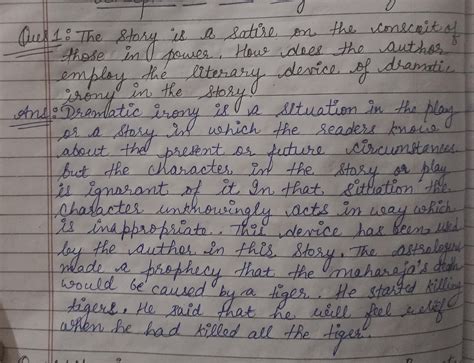 Ques 1: The story is a satire on the conscait of
those in power. How does the author
employ the literary device of dramatic
irony in the story
Ans: Dramatic irony is a situation in the play
or a story in which the readers know
about the present or future circumstances
but the character in the story or play
is ignorant of it In that situation the
character unknowingly acts in way which
is inappropriate. This device has been used
by the author in this story. The astrologers
made a prophecy that the maharaja's death
would be caused by a tiger. He started killing
tigers. He said that he will feel
when he had killed all the tiger.